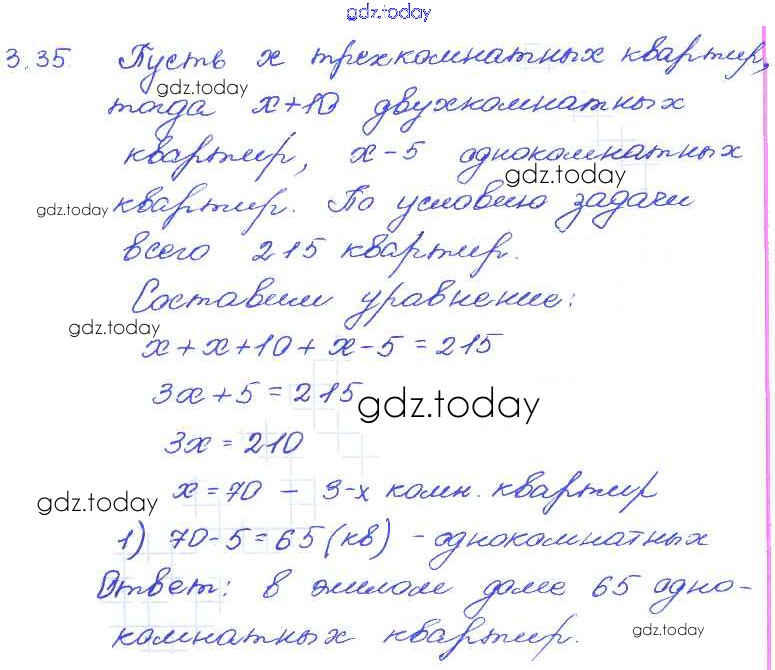 gdz.today
3.35. Пусть x трехкомнатных квартир,
gdz.today
тогда x+10 двухкомнатных
квартир, x-5 однокомнатных
gdz.today
gdz.today квартир. По условию задачи
всего 215 квартир.
Составим уравнение:
gdz.today
x+x+10+x-5=215
3x+5=215
gdz.today
3x=210
x=70 - 3-х комн. квартир
gdz.today
1) 70-5=65 (кв) - однокомнатных
Ответ: в жилом доме 65 одно-
комнатных квартир.
gdz.today